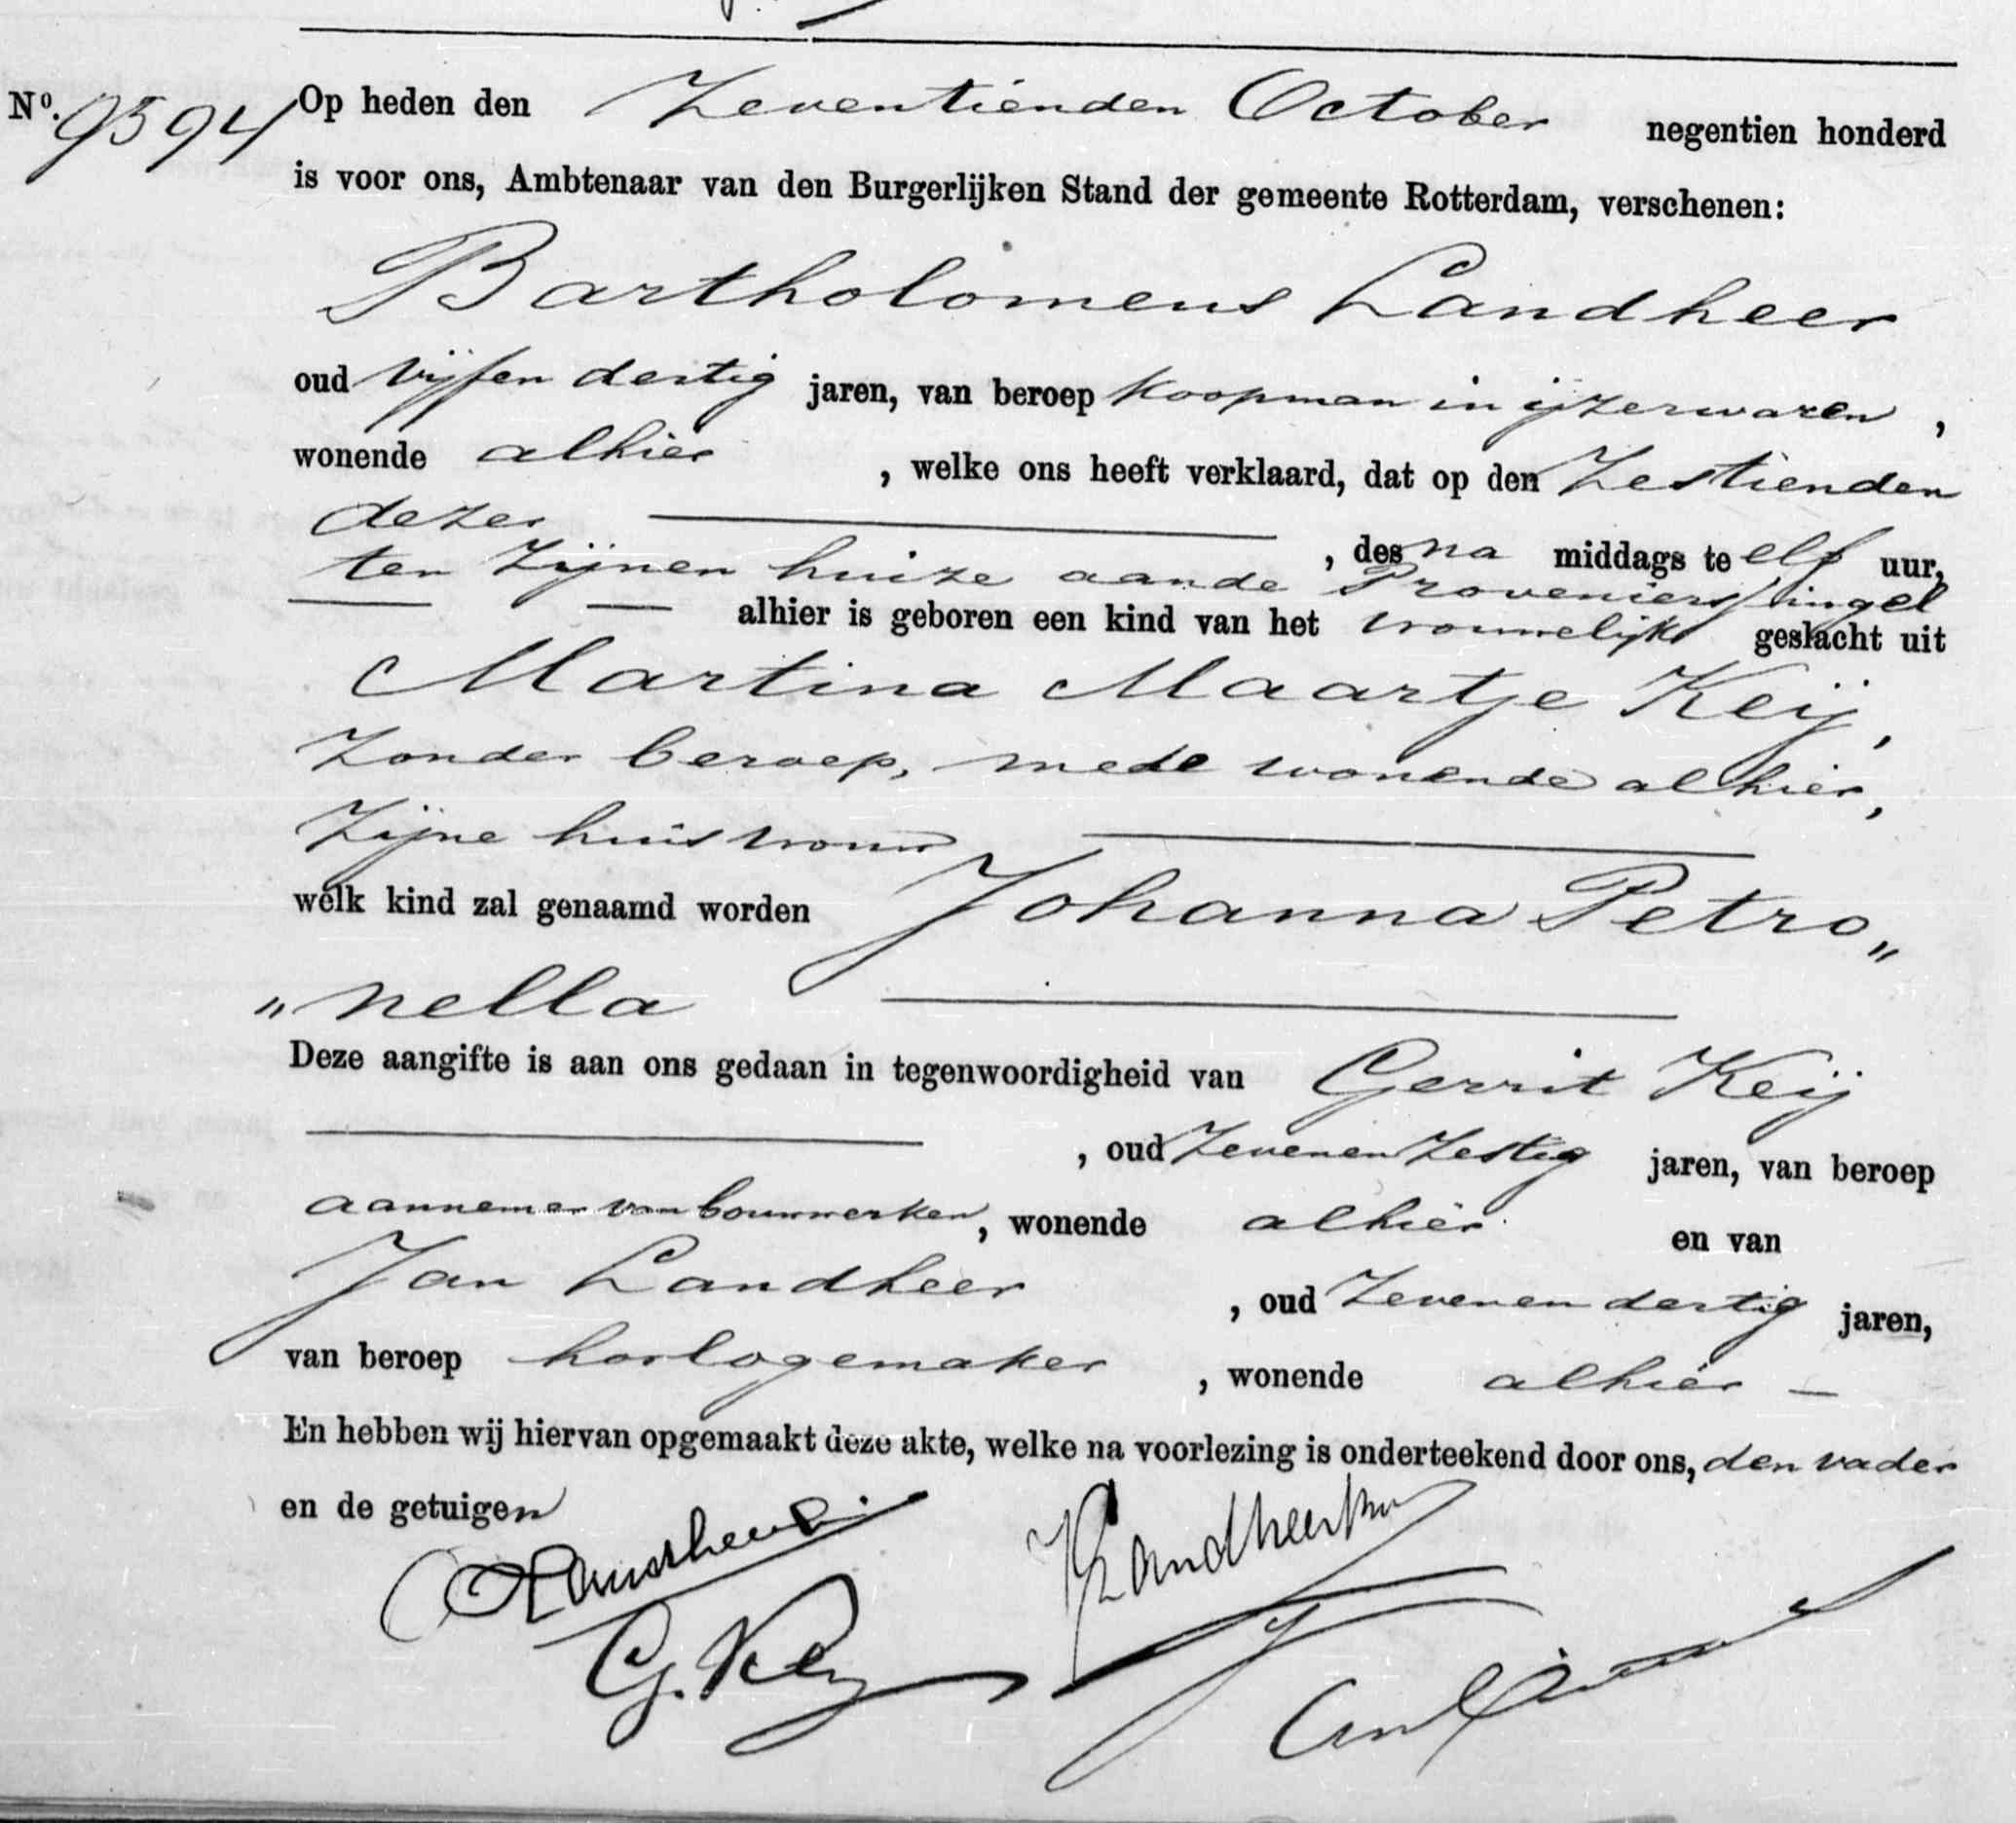 Nº. 9594 Op heden den Zeventienden October negentien honderd
is voor ons, Ambtenaar van den Burgerlijken Stand der gemeente Rotterdam, verschenen:
Bartholomeus Landheer
oud vijfen dertig jaren, van beroep koopman in ijzerwaren,
wonende alhier, welke ons heeft verklaard, dat op den Zestienden
dezer, des na middags te elf uur,
ten Zijnen huize aande Provenierssingel
alhier is geboren een kind van het vrouwelijk geslacht uit
Martina Maartje Keij,
Zonder beroep, mede wonende alhier,
Zijne huisvrouw
welk kind zal genaamd worden Johanna Petro„
„nella
Deze aangifte is aan ons gedaan in tegenwoordigheid van Gerrit Keij
, oud Zevenen Zestig jaren, van beroep
aannemer van bouwwerken, wonende alhier en van
Jan Landheer, oud Zevenen dertig jaren,
van beroep horlogemaker, wonende alhier —
En hebben wij hiervan opgemaakt deze akte, welke na voorlezing is onderteekend door ons, den vader
en de getuigen
Landheer
G. Keij